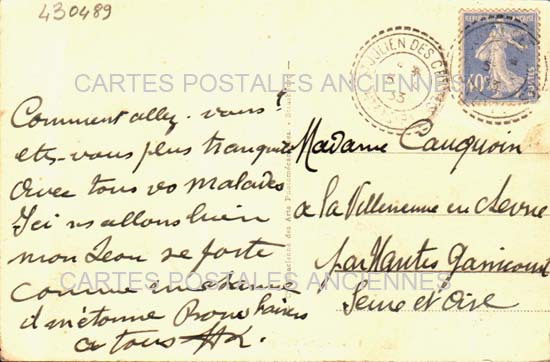 430489
REPUBLIQUE FRANÇAISE
40c
JULIEN DES
33
CARTES POSTALES ANCIENNES
Comment allez-vous?
etes-vous plus tranquille
avec tous vos malades
Ici ns allons bien
mon Leon se porte
comme un
il m'étonne Bons baisers
a tous
Madame Cauquoin
a la Villeneuve en Chevrie
par Mantes Gassicourt
Seine et Oise
CARTES POSTALES ANCIENNES